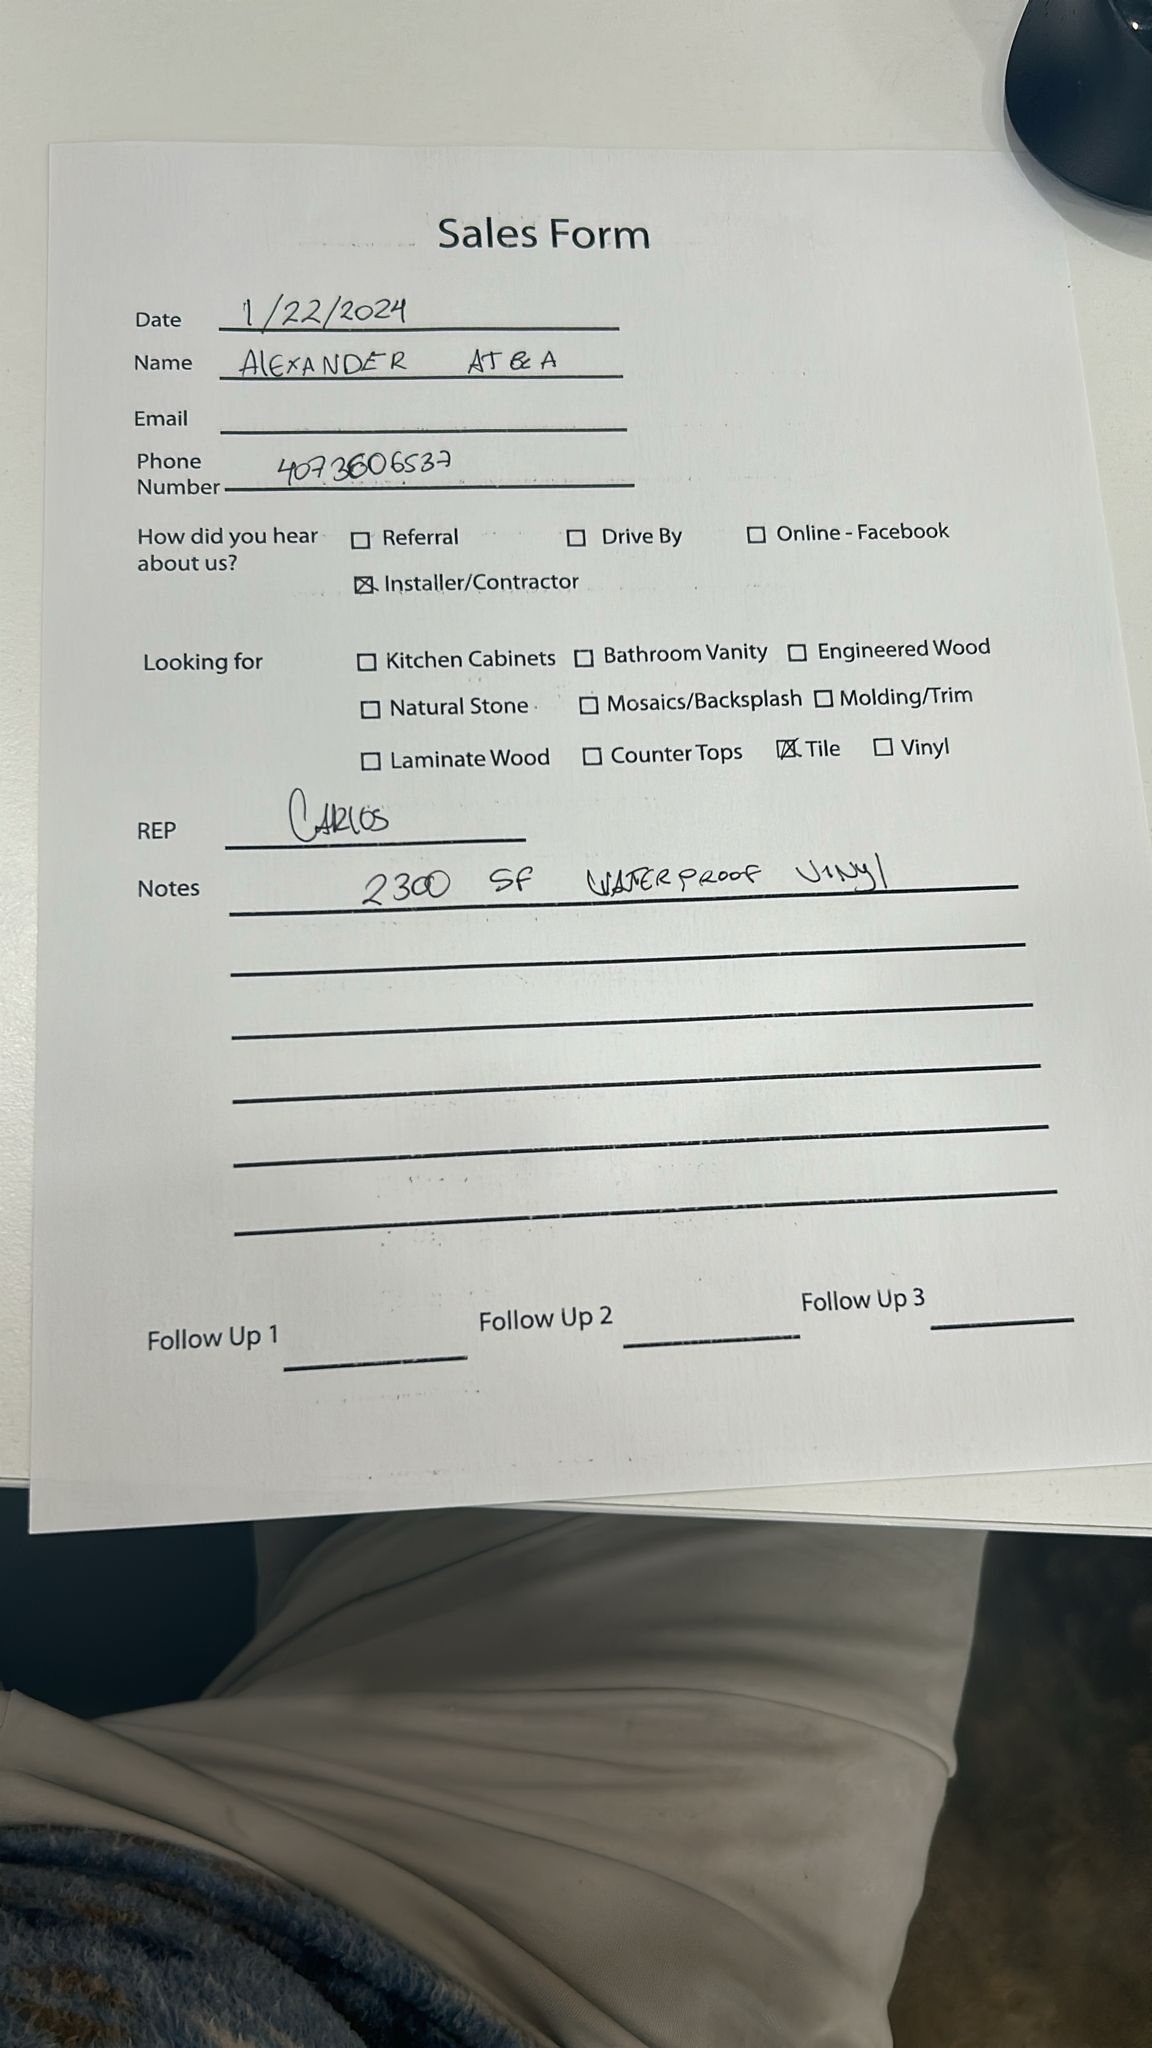 Sales Form
Date 1/22/2024
Name ALEXANDER AT&A
Email
Phone Number 4073606537
How did you hear about us? ☐ Referral ☐ Drive By ☐ Online - Facebook
☒ Installer/Contractor
Looking for ☐ Kitchen Cabinets ☐ Bathroom Vanity ☐ Engineered Wood
☐ Natural Stone ☐ Mosaics/Backsplash ☐ Molding/Trim
☐ Laminate Wood ☐ Counter Tops ☒ Tile ☐ Vinyl
REP CARLOS
Notes 2300 SF WATERPROOF VINYL
Follow Up 1 Follow Up 2 Follow Up 3